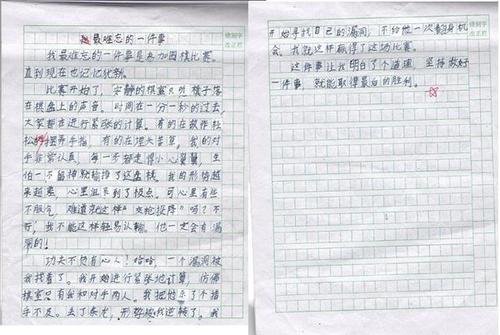 最难忘的一件事
我最难忘的一件事是参加围棋比赛。
直到现在也记忆犹新。
比赛开始了，安静的棋室只听棋子落
在棋盘上的声音。时间在一分一秒的过去，
大家都在进行紧张的计算。有的在故作轻
松的摆弄手指，有的在埋头苦思。我的对
手非常认真，每一步都走得小心翼翼，生
怕一不留神就输掉了这盘棋。我的形势越
来越差，心里沮丧到了极点。可心里有些
不服气，难道就这样“交枪投降”吗？不
行，我不能这样轻易认输。他一定会有漏
洞的！
功夫不负有心人！哈哈，一个漏洞被
我找着了。我开始进行紧张地计算，仿佛
棋室只有我和对手两人。我把他杀了个措
手不及。去了条龙，形势被我逆转了。我
开始寻找自己的漏洞，不给他一次翻身机
会。我就这样赢得了这场比赛。
这件事让我明白了个道理，坚持做好
一件事，就能取得最后的胜利。